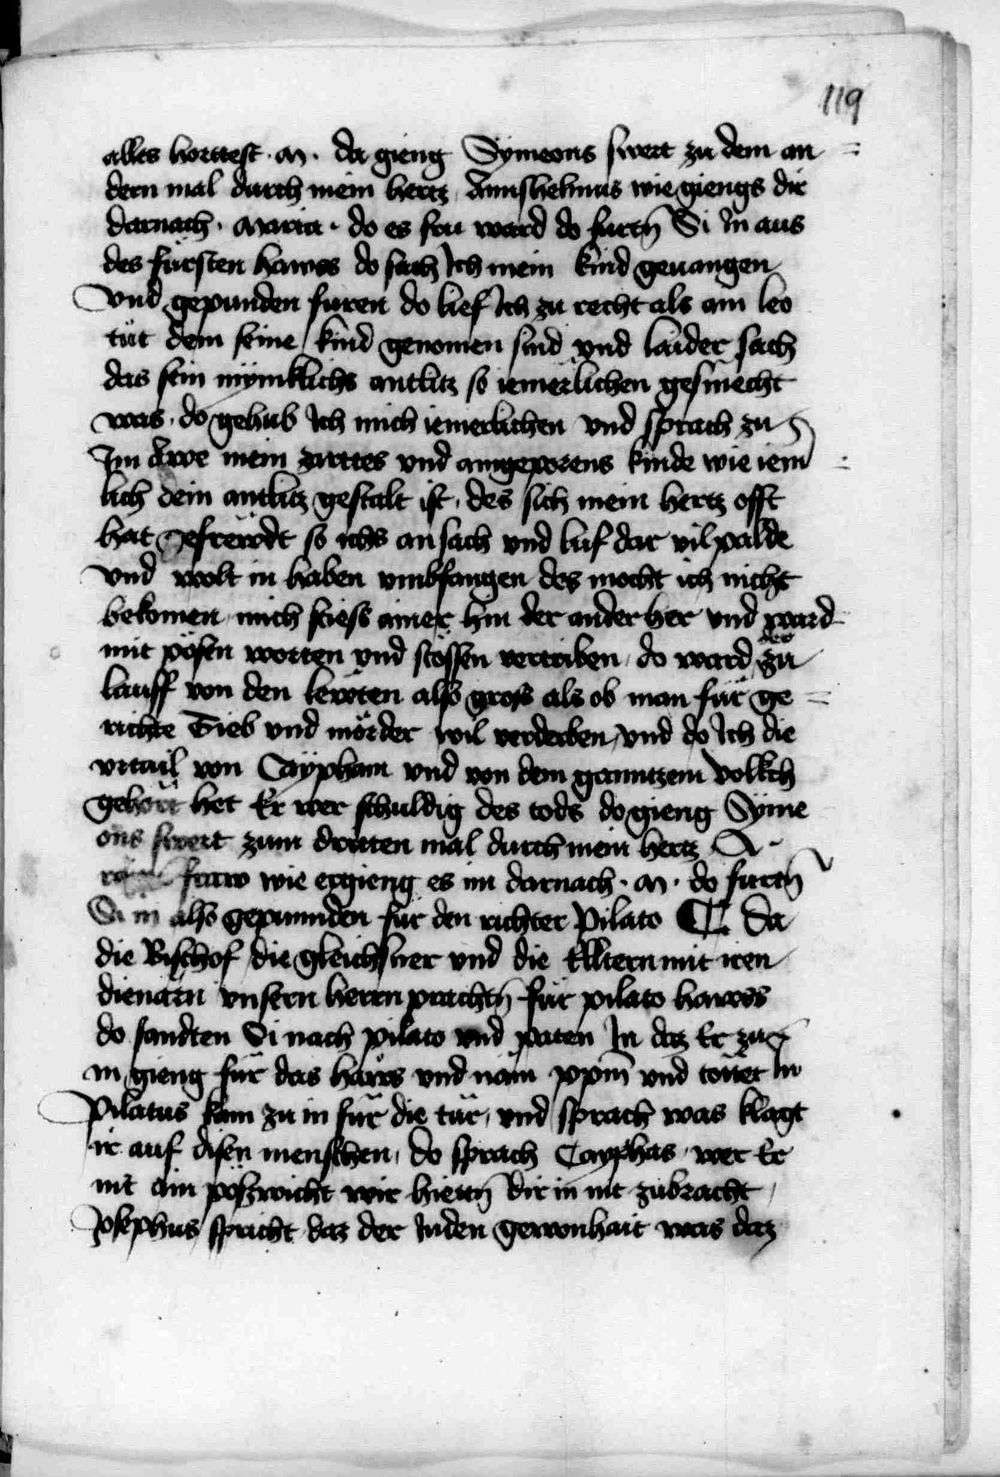 119
alles horttest · M · da gieng Sÿmeons swert zu dem an=
dern mal durch mein hertz Annshelmus wie giengs dir
darnach · Maria · do es fru ward do furtn̄ Si In aus
des fürsten hawss do sach Ich mein kind geuangen
Vnd gepunden furen do lief Ich zu recht als ain leo
tüt dem seine kind genomen sind vnd laider sach
das sein mÿniklichs antlitz so iemerlichen gesmecht
was · do gehub Ich mich iemerlichen vnd sprach zu
Im Awe mein zarttes vnd aingeporens kinde wie iem=
lich dein antlitz gestalt ist, des sich mein hertz offt
hat gefrewdt so ichs an sach vnd luf dar vil palde
Vnd wolt in haben vmbfangen des mocht ich nicht
bekomen mich stiess ainer hin der ander her vnd ward
mit pösen worten vnd stössen vertriben, do ward der zü
lauff von den lewten also gross als ob man für ge=
richte Dieb vnd mörder wil verderben, vnd do Ich die
vrtail von Caÿpham vnd von dem ganntzem volkch
gehört het Er wer schuldig des tods do gieng Sÿme
ons swert zum dritten mal durch mein hertz A ·
fraw wie ergieng es im darnach · M · do furtn̄
Si in also gepunnden für den richter Pilato Da
die Bischof die gleichsner vnd die Elltern mit iren
dienärn vnsern herrn prachtn̄ für pilato hawss
do sandten Si nach pilato vnd paten In daz Er zu
in gieng für das haws vnd näm ppm̄ vnd töttet In
Pilatus kam zu in für die tür, vnd sprach was klagt
ir auf disen menschen, do sprach Cayphas, wer Er
nit ain pöswicht wir hietn̄ dir in nit zubracht,
Josephus spricht daz der Juden gewonhait was daz